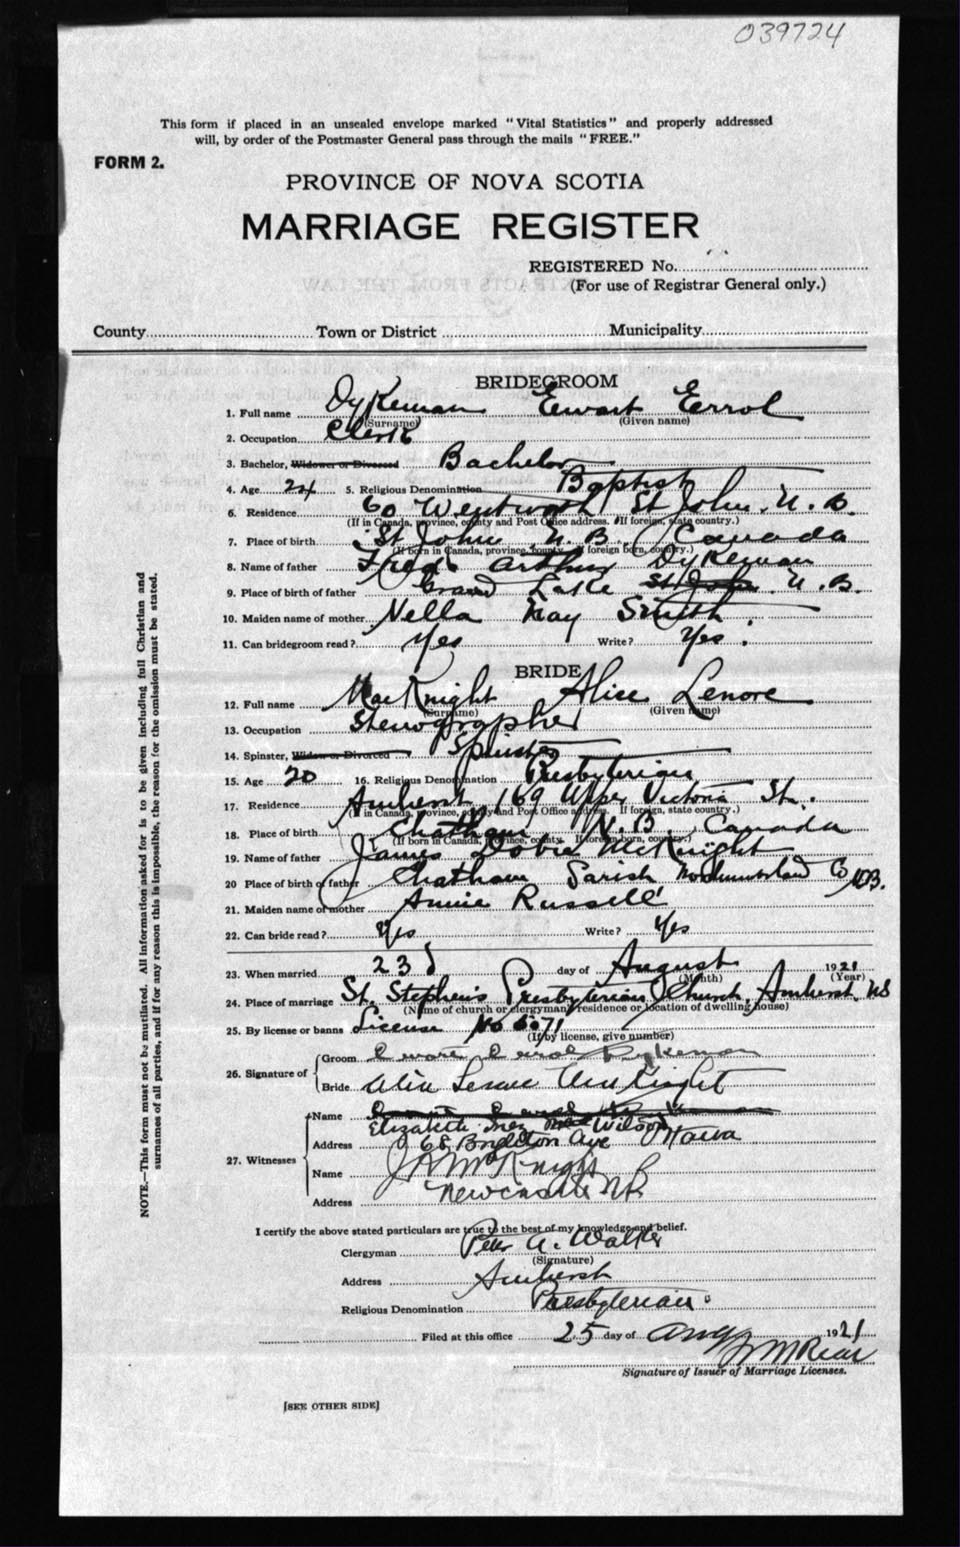 039724
This form if placed in an unsealed envelope marked "Vital Statistics" and properly addressed
will, by order of the Postmaster General pass through the mails "FREE."
FORM 2.
PROVINCE OF NOVA SCOTIA
MARRIAGE REGISTER
REGISTERED No.
(For use of Registrar General only.)
County Town or District Municipality
BRIDEGROOM
1. Full name Dykeman Ewart Errol
(Surname) (Given name)
2. Occupation Clerk
3. Bachelor, Widower or Divorced Bachelor
4. Age 24 5. Religious Denomination Baptist
6. Residence 60 Wentworth St John. N. B.
(If in Canada, province, county and Post Office address. If foreign, state country.)
7. Place of birth St John N. B. Canada
(If born in Canada, province, county. If foreign born, country.)
8. Name of father Fred Arthur Dykeman
9. Place of birth of father Grand Lake St John N. B.
10. Maiden name of mother Nella May Smith
11. Can bridegroom read? Yes Write? Yes.
BRIDE
12. Full name MacKnight Alice Lenore
(Surname) (Given name)
13. Occupation Stenographer
14. Spinster, Widow or Divorced Spinster
15. Age 20 16. Religious Denomination Presbyterian
17. Residence Amherst 169 Upper Victoria St.
(If in Canada, province, county and Post Office address. If foreign, state country.)
18. Place of birth Chatham N. B. Canada
(If born in Canada, province, county. If foreign born, country.)
19. Name of father James Dobie McKnight
20 Place of birth of father Chatham Parish Northumberland Co NB.
21. Maiden name of mother Annie Russell
22. Can bride read? Yes Write? Yes
23. When married 23d day of August 1921
(Month) (Year)
24. Place of marriage St. Stephen's Presbyterian Church, Amherst. NS
(Name of church or clergyman's residence or location of dwelling house)
25. By license or banns License No 6071
(If by license, give number)
26. Signature of Groom Ewart Errol Dykeman
Bride Alice Lenore MacKnight
27. Witnesses Name Elizabeth Inez Wilson
Address 68 Ave Ottawa
Name J A McKnight
Address Newcastle NB
I certify the above stated particulars are true to the best of my knowledge and belief.
Clergyman Peter A. Walker
(Signature)
Address Amherst
Religious Denomination Presbyterian.
Filed at this office 25 day of Aug 1921
Signature of Issuer of Marriage Licenses.
[SEE OTHER SIDE]
NOTE.—This form must not be mutilated. All information asked for is to be given including full Christian and
surnames of all parties, and if for any reason this is impossible, the reason for the omission must be stated.